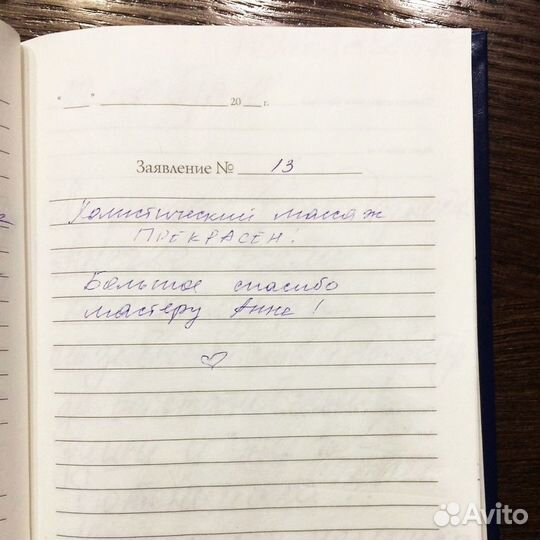 "___" ____________ 20 __ г.
Заявление № 13
Холистический массаж
ПРЕКРАСЕН!
Большое спасибо
мастеру Анне!
Avito